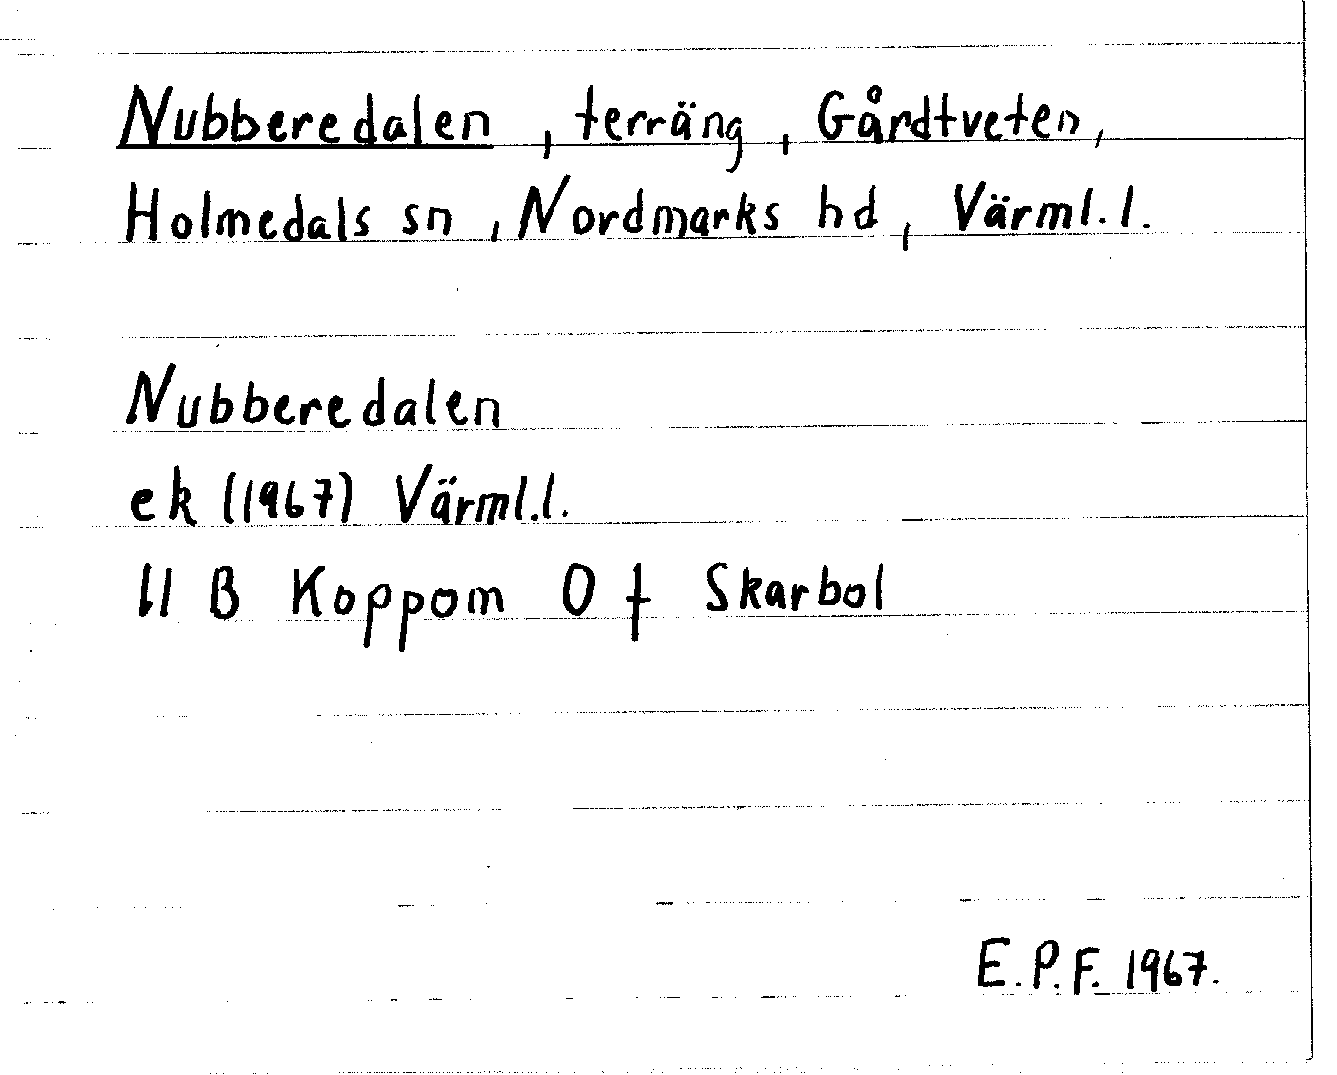 Nubberedalen, terräng, Gårdtveten,
Holmedals sn, Nordmarks hd, Värml. l.
Nubberedalen
ek (1967) Värml.l.
11 B Koppom 0 f Skarbol
E.P.F. 1967.